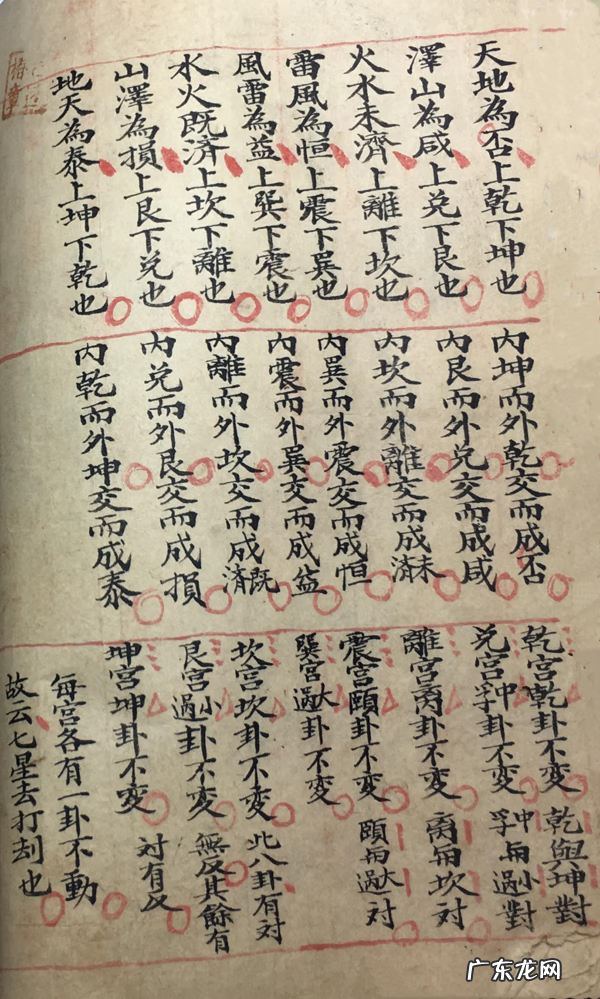 天地為否上乾下坤也
澤山為咸上兑下艮也
火水未濟上離下坎也
雷風為恒上震下巽也
風雷為益上巽下震也
水火既済上坎下離也
山澤為損上艮下兑也
地天為泰上坤下乾也
內坤而外乾交而成否
內艮而外兑交而成咸
內坎而外離交而成未済
內巽而外震交而成恒
內震而外巽交而成益
內離而外坎交而成既済
內兑而外艮交而成損
內乾而外坤交而成泰
乾宮乾卦不変
兑宮中孚卦不変
離宮离卦不変
震宮頤卦不変
巽宮大過卦不変
坎宮坎卦不変
艮宮小過卦不変
坤宮坤卦不変
乾與坤對
中孚与小過對
离与坎対
頤与大過対
此八卦有対
無反其餘有
対有反
每宮各有一卦不動
故云七星去打刼也
广东龙网